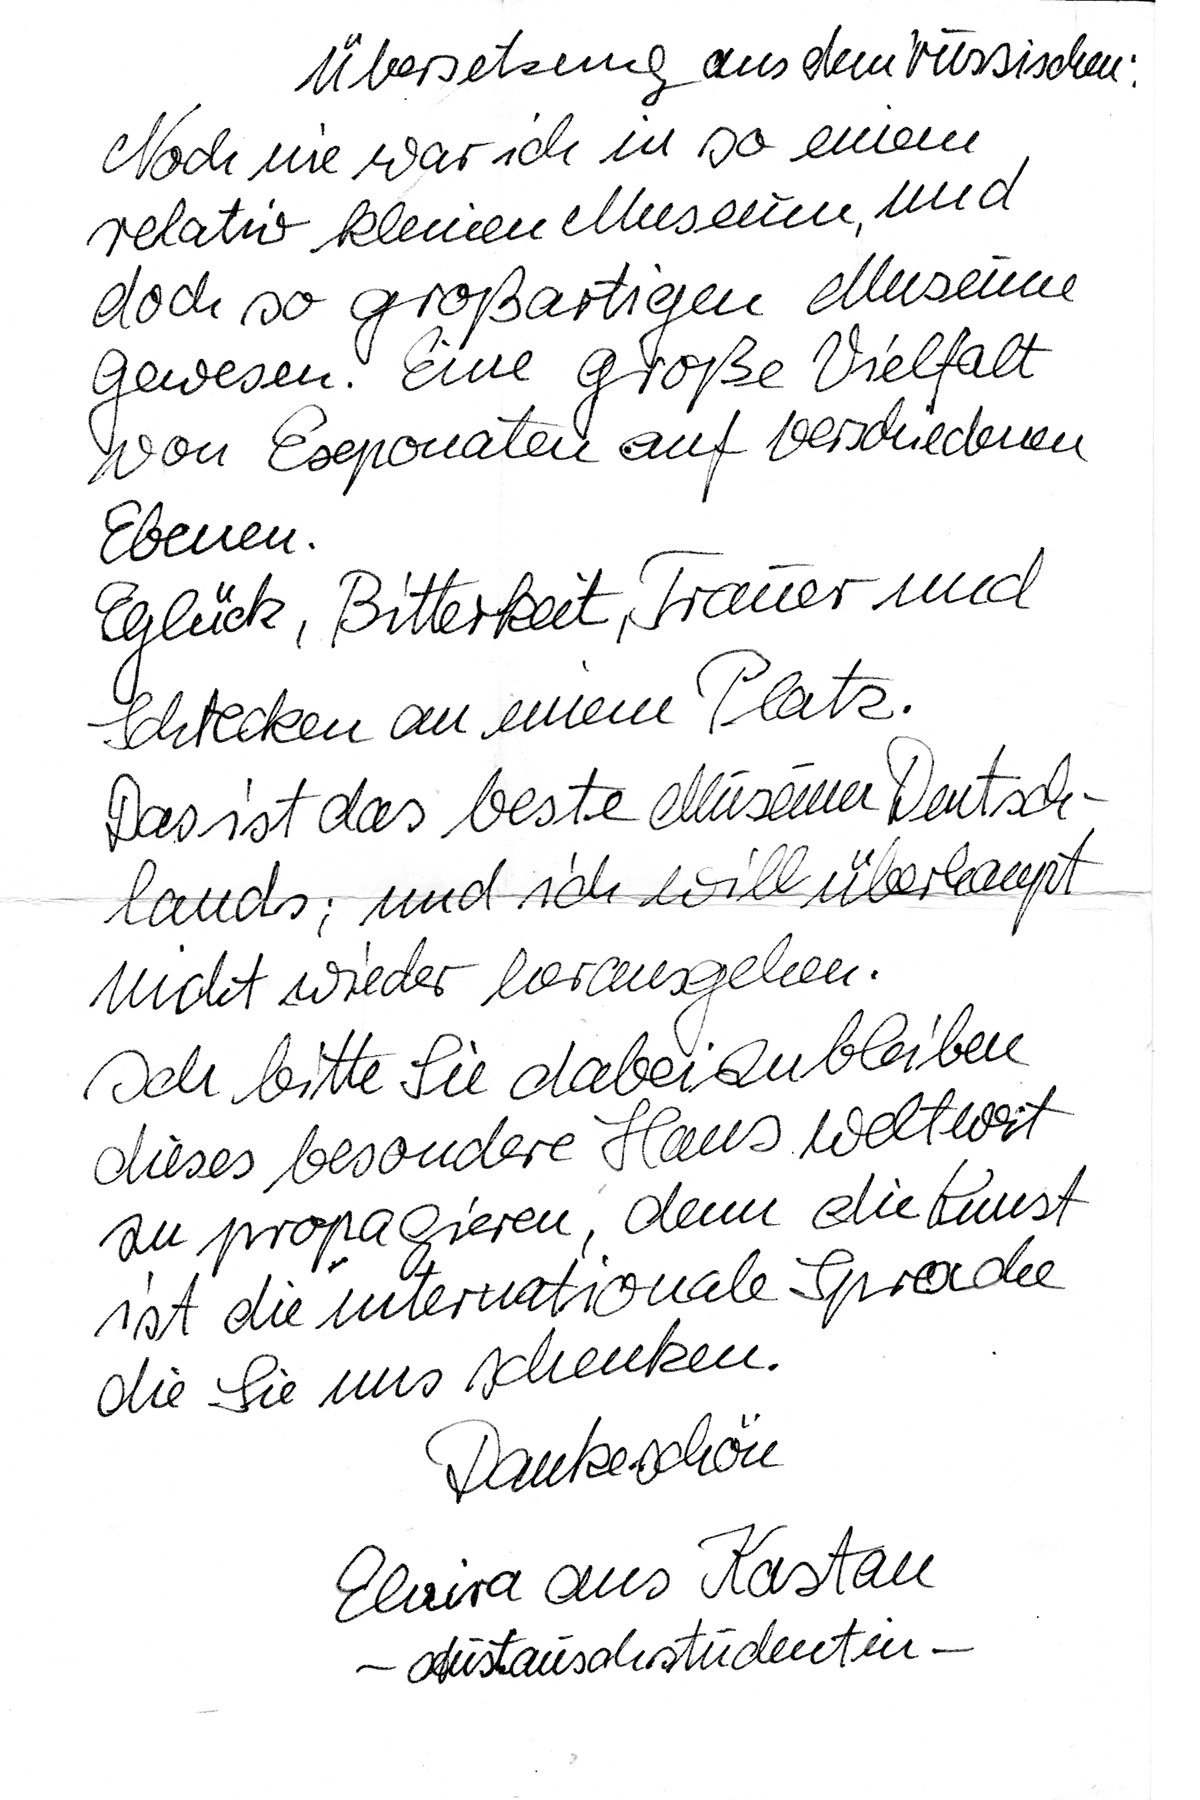 Übersetzung aus dem russischen:
Noch nie war ich in so einem
relativ kleinen Museum, und
doch so großartigen Museum
gewesen. Eine große Vielfalt
von Exponaten auf verschiedenen
Ebenen.
Eglück, Bitterkeit, Trauer und
Schrecken an einem Platz.
Das ist das beste Museum Deutsch-
lands; und ich will überhaupt
nicht wieder herausgehen.
Ich bitte Sie dabeizubleiben
dieses besondere Haus weltweit
zu propagieren, denn die Kunst
ist die internationale Sprache
die Sie uns schenken.
Dankeschön
Elvira aus Kastan
- Austauschstudentin -